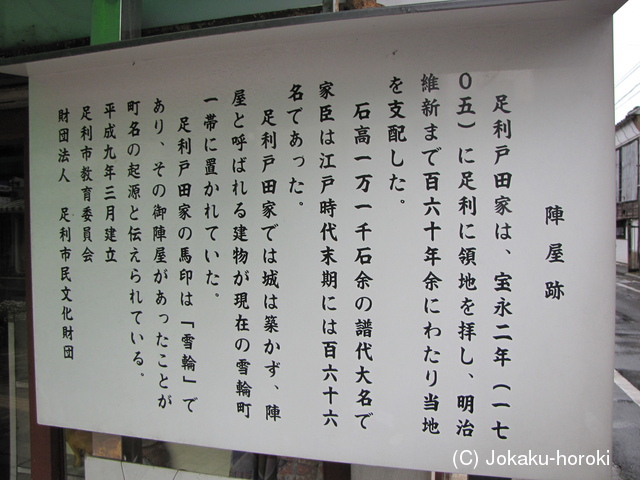 陣屋跡
足利戸田家は、宝永二年（一七
〇五）に足利に領地を拝し、明治
維新まで百六十年余にわたり当地
を支配した。
石高一万一千石余の譜代大名で
家臣は江戸時代末期には百六十六
名であった。
足利戸田家では城は築かず、陣
屋と呼ばれる建物が現在の雪輪町
一帯に置かれていた。
足利戸田家の馬印は「雪輪」で
あり、その御陣屋があったことが
町名の起源と伝えられている。
平成九年三月建立
足利市教育委員会
財団法人　足利市民文化財団
(C) Jokaku-horoki